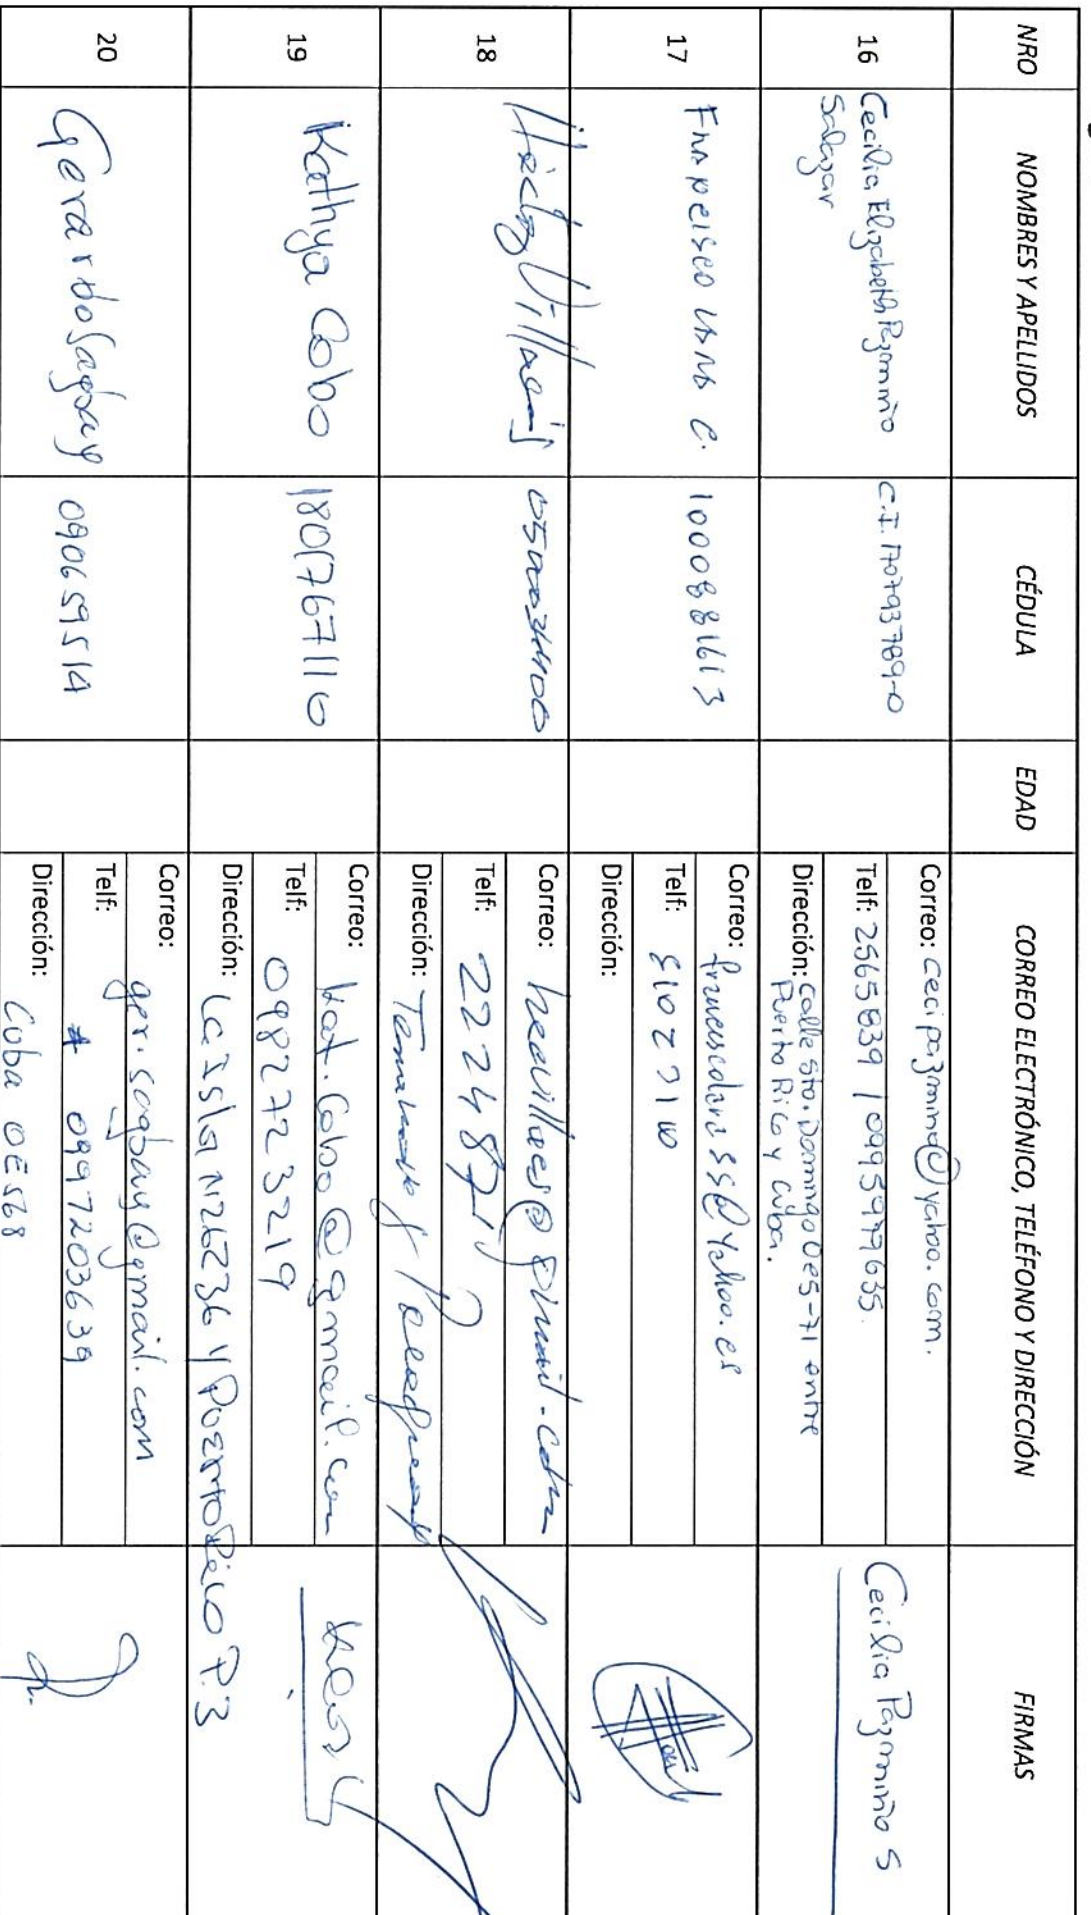 NRO NOMBRES Y APELLIDOS CÉDULA EDAD CORREO ELECTRÓNICO, TELÉFONO Y DIRECCIÓN FIRMAS
16
Cecilia Elizabeth Pazmiño
Salazar
C.I. 170793789-0
Correo: cecipazmino@yahoo.com.
Telf: 2565839 / 0995979635
Dirección: calle Sto. Domingo Oe5-71 entre
Puerto Rico y Cuba.
Cecilia Pazmiño S
17
Francisco Lara C.
1000881613
Correo: franciscolara55@yahoo.es
Telf:
Dirección:
18
Correo:
Telf:
Dirección:
19
Kathya Cobo
1801767110
Correo: kat.cobo@gmail.com
Telf: 0982723219
Dirección: La Isla N26236 y Puerto Rico P.3
20
Gerardo Sagbay
090659514
Correo: ger.sagbay@gmail.com
Telf: 0997203639
Dirección: Cuba OE568